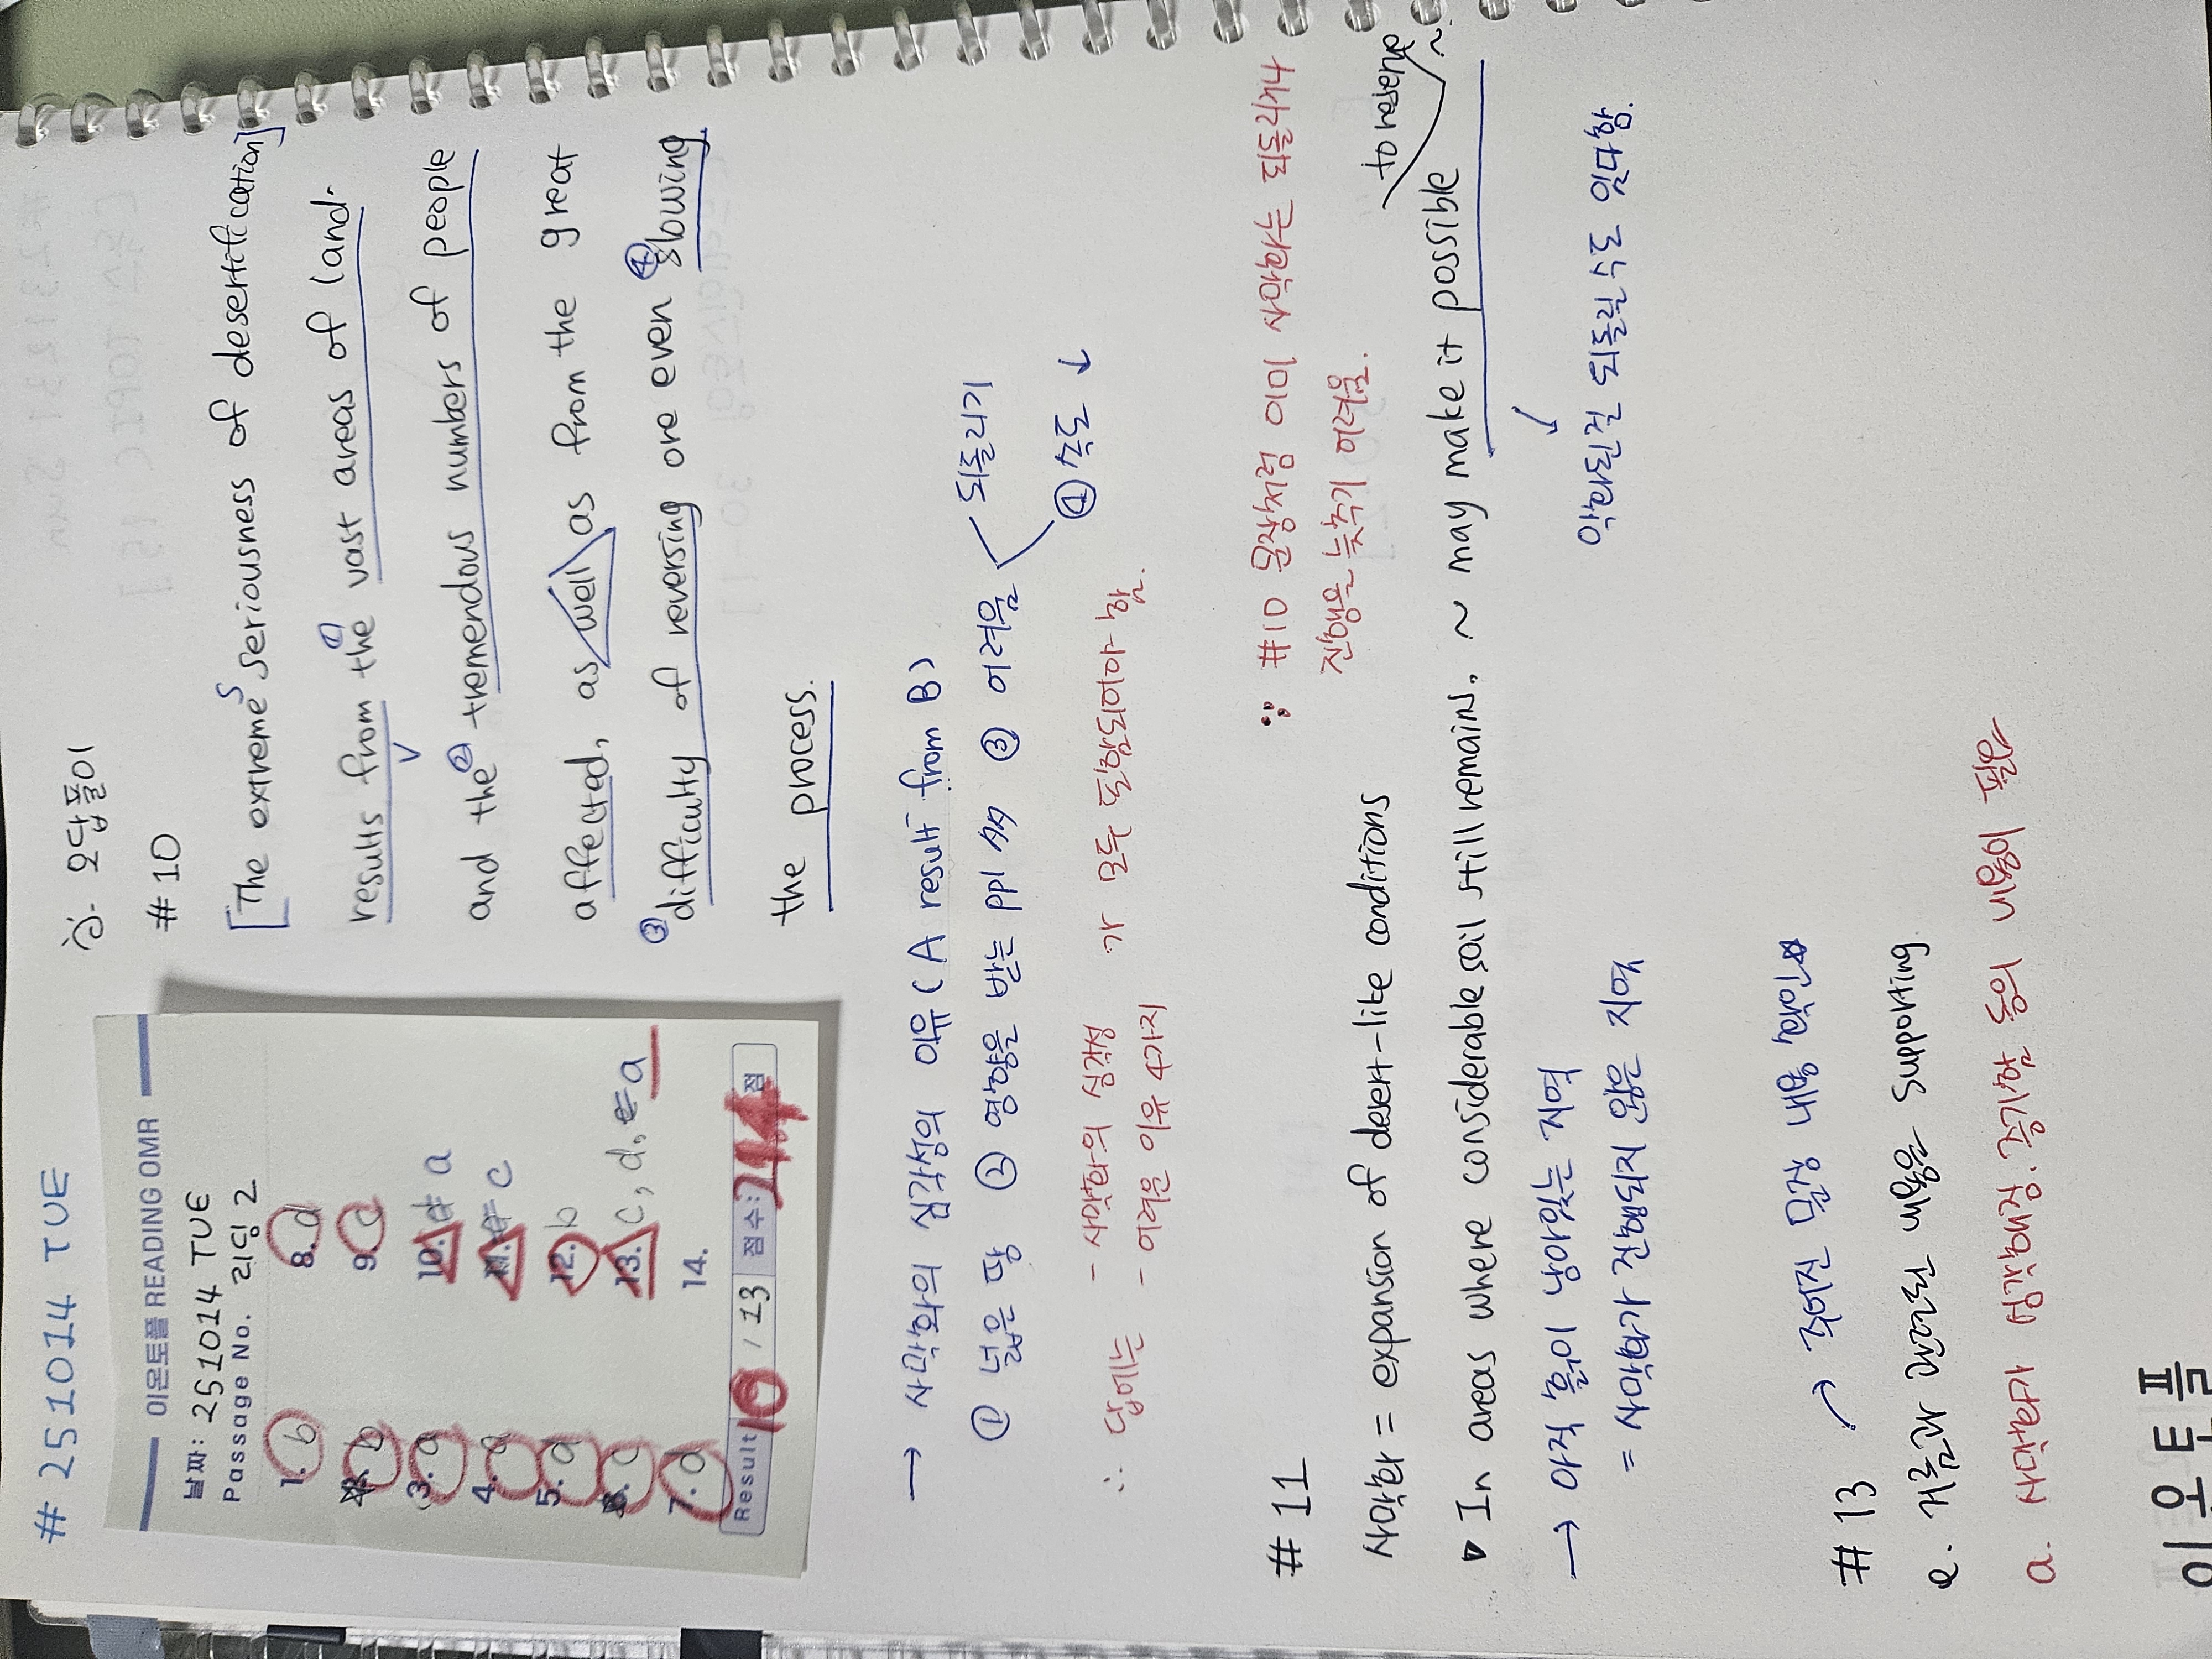 # 251014 TUE
이온토플 READING OMR
날짜: 251014 TUE
Passage No. 리딩 2
1. b
2. b
3. a
4. a
5. d
6. c
7. d
8. d
9. c
10. d a
11. d c
12. b
13. c, d, e a
14.
Result 10 / 13 점수: 24 점
오답풀이
# 10
[The extreme seriousness of desertification]
S
results from the ① vast areas of land.
V
and the ② tremendous numbers of people
affected, as well as from the great
③ difficulty of reversing ore even ④ slowing
the process.
→ 사막화의 심각성의 이유 (A result from B)
① 넓은 땅 ② 영향을 받는 ppl ③ 어려움
되돌리기
④ 속도 ↓
∴ 답에는 - 사막화의 심각성
- 어려운 이유 4가지
가 모두 포함되어야 함.
# 11
사막화 = expansion of desert-like conditions
▷ In areas where considerable soil still remains, ~ may make it possible ~
to reserve
→ 아직 흙이 남아있는 지역
= 사막화가 진행되지 않은 지역
악화된걸 되돌릴 수도 있다함.
∴ #10 문장처럼 이미 사막화하면 되돌리거나
진행을 늦추기 어려움.
# 13
→ 주어진 문장 내용 확인☆
e. 거름과 관련된 내용은 supporting
a. 사막화가 심각해짐. 증가할 것이 내용이 포함
이온토플